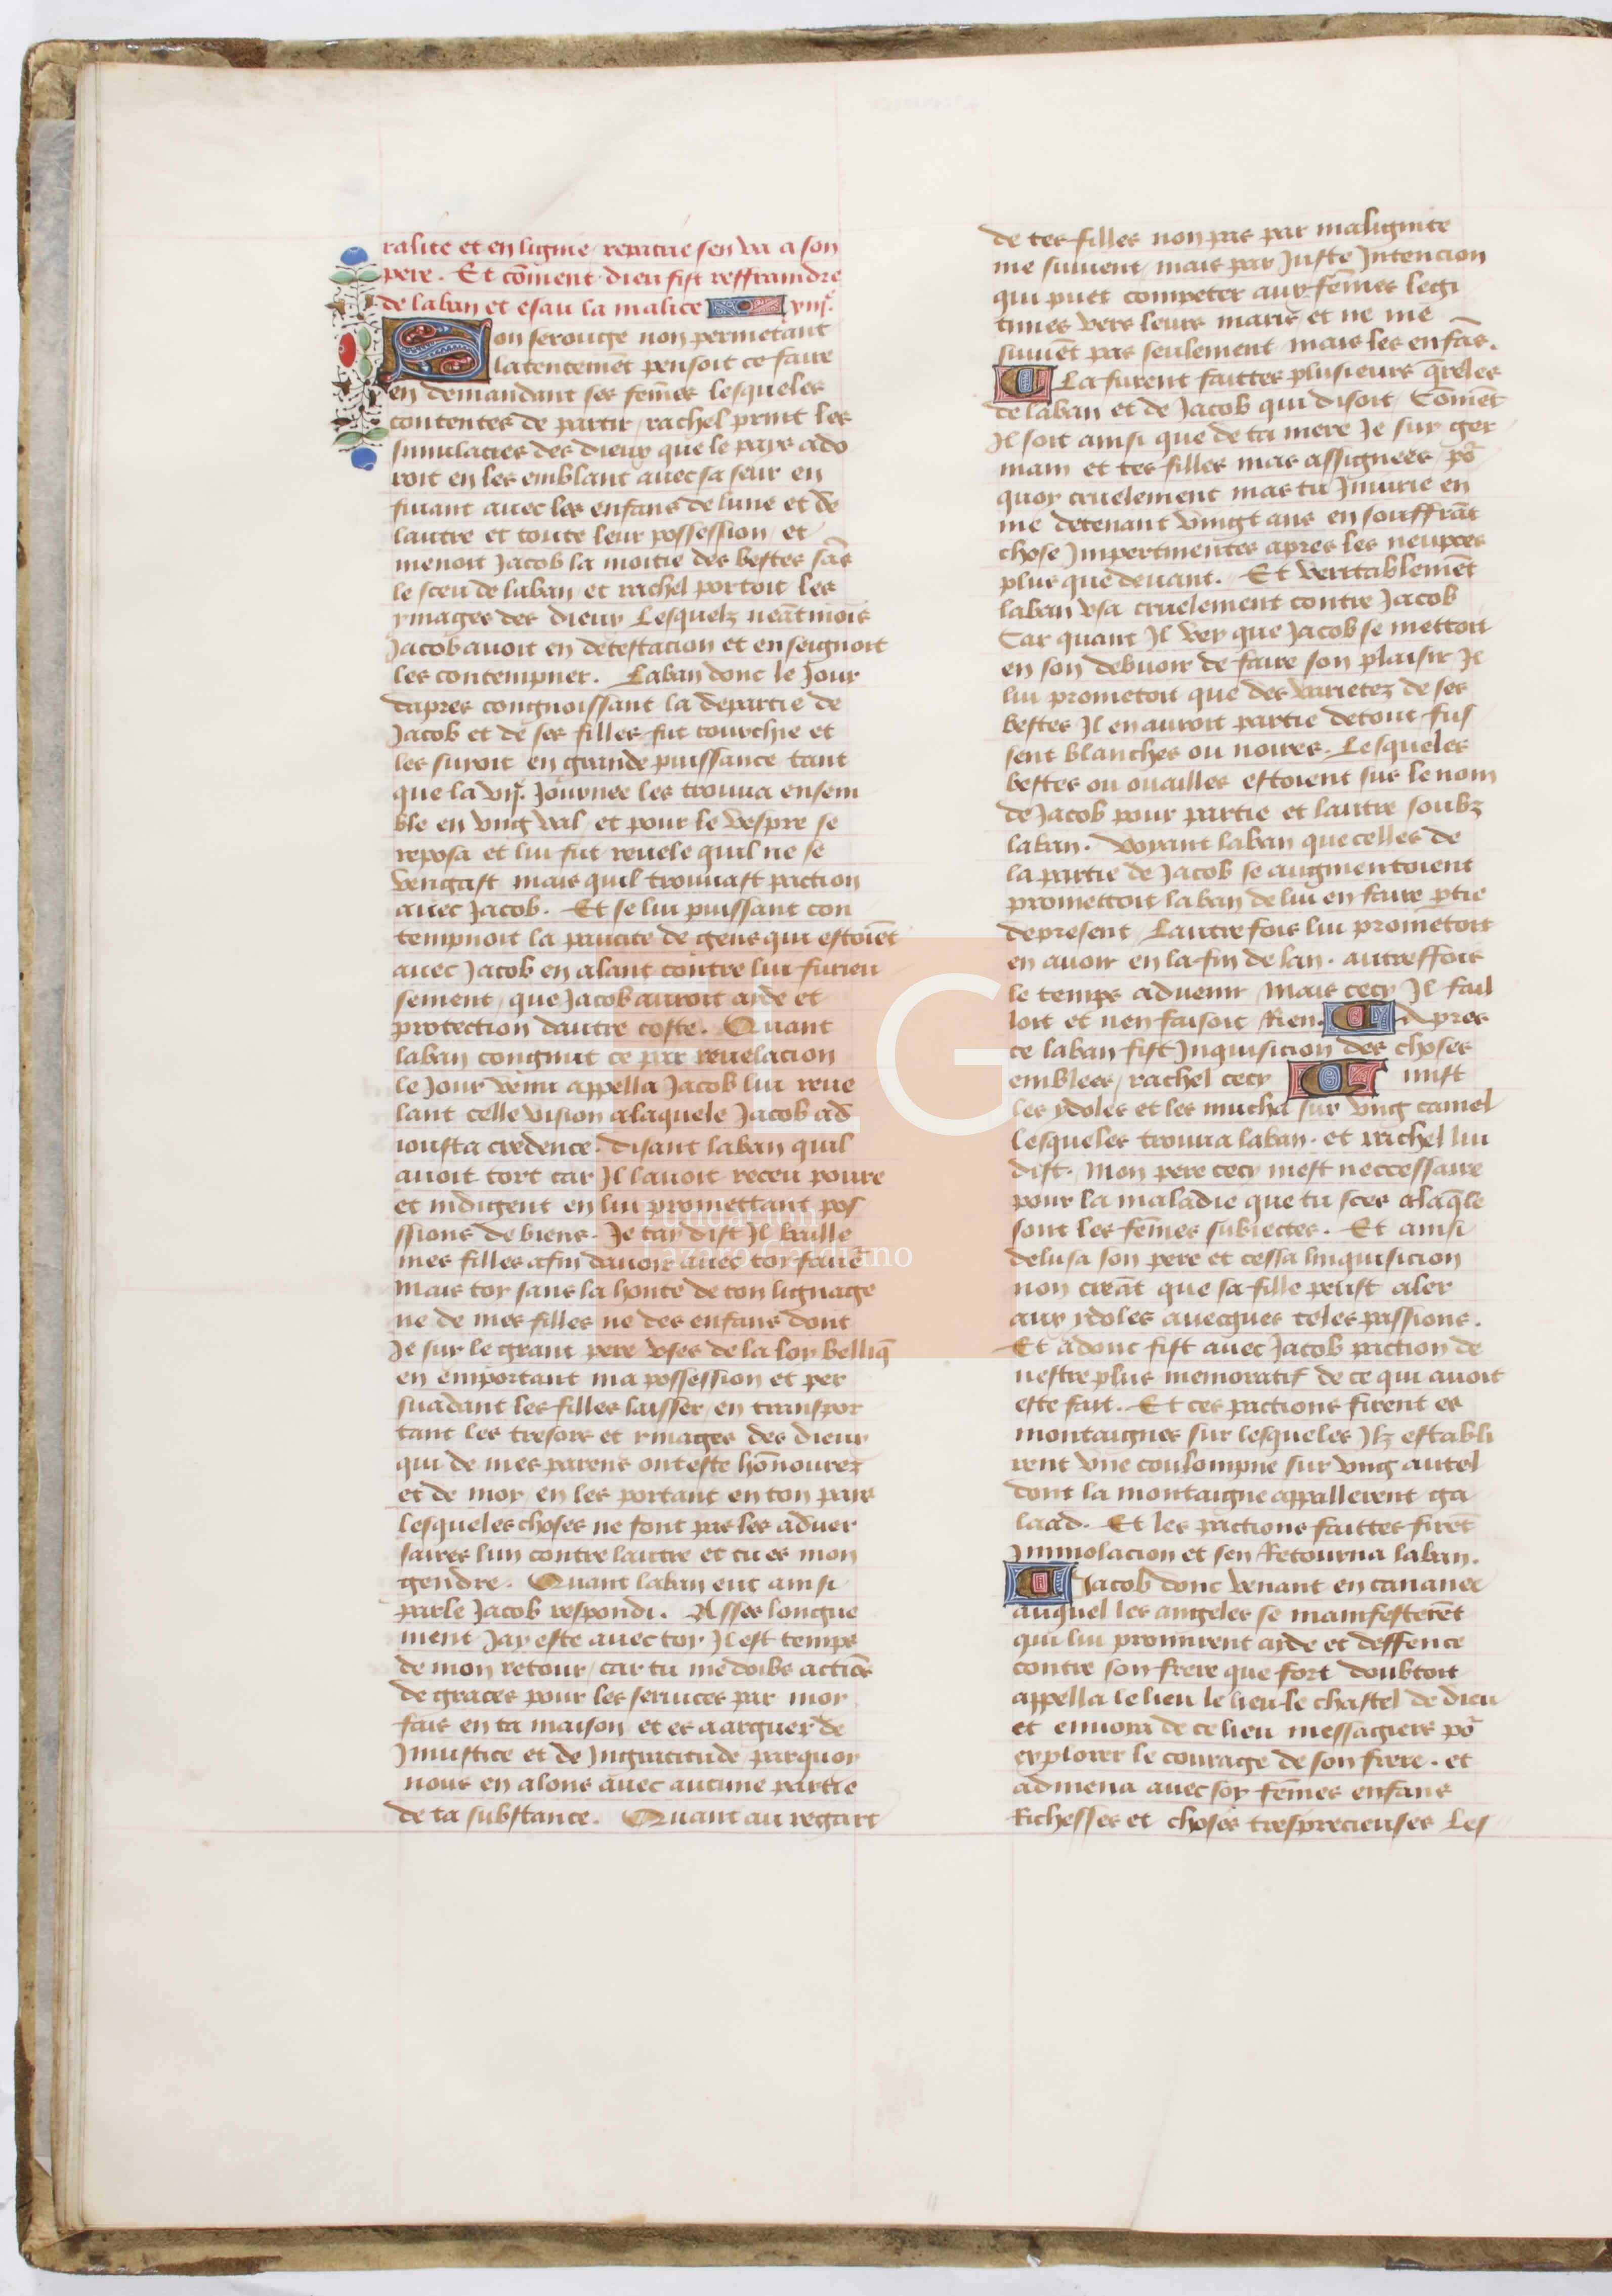 ralite et en lignie repairie sen va a son
pere . Et coment dieu fist reffraindre
de laban et esau la malice viij.
Son serouge non permetant
latentemēt pensoit ce faire
en demandant ses femes lesqueles
contentes de partir / rachel print les
simulacres des dieux que le pays ado
roit en les emblant avec sa seur en
fuiant avec les enfans de lune et de
lautre et toute leur possession / et
menoit Jacob la moitie des bestes sās
le sceu de laban et rachel portoit les
ymages des dieux Lesquelz neātmois
Jacob avoit en detestacion et enseignoit
les contempner . Laban donc le Jour
dapres congnoissant la departie de
Jacob et de ses filles fut courchie et
les suivit en grande puissance tant
que la vij. Journee les trouva ensem
ble en ung val et pour le vespre se
reposa et lui fut revele quil ne se
vengast mais quil trouvast paction
avec Jacob . Et se lui puissant con
tempnoit la paucite de gens qui estoiēt
avec Jacob en alant contre lui furieu
sement / que Jacob auroit aide et
protection dautre coste . Quant
laban congnut ce par revelacion
le Jour venu appella Jacob lui reve
lant celle vision alaquele Jacob ad
iousta credence . disant laban quil
avoit tort car Il lavoit receu povre
et indigent en lui promettant pos
ssions de biens . Je tay dist Il baille
mes filles afin davoir avec toy faveˀ
Mais toy sans la honte de ton lignage
ne de mes filles ne des enfans dont
Je suy le grant pere uses de la loy belliq̄
en emportant ma possession et per
suadant les filles laisser en transpor
tant les tresors et ymages des dieux
qui de mes parens ont este hōnourez
et de moy en les portant en ton pais
lesqueles choses ne font pas les adver
saires lun contre lautre et tu es mon
gendre . Quant laban eut ainsi
parle Jacob respondi . Asses longue
ment Jay este avec toy Il est temps
de mon retour / car tu me doibs actiōs
de graces pour les services par moy
fais en ta maison et es a arguer de
Jniustice et de Jngratitude parquoy
nous en alons avec aucune partie
de ta substance . Quant au regart
de tes filles non pas par malignite
me suivent / mais par Juste Jntencion
qui puet competer aux femes legi
times vers leurs maris et ne me
suivēt pas seulement mais les enfās .
La furent faittes plusieurs q̄reles
de laban et de Jacob qui disoit / Comēt
Il soit ainsi que de ta mere Je suy ger
main et tes filles mas assignees poˀ
quoy cruelement mas tu Jniurie en
me detenant vingt ans en souffrāt
chose Jmpertinentes apres les neupces
plus que devant . Et veritablemēt
laban usa cruelement contre Jacob
Car quant Il vey que Jacob se mettoit
en son debvoir de faire son plaisir Il
lui prometoit que des varietez de ses
bestes Il en auroit partie de tout fus
sent blanches ou noires . Lesqueles
bestes ou ouailles estoient sur le nom
de Jacob pour partie et lautre soubz
laban . voyant laban que celles de
la partie de Jacob se augmentoient
promettoit laban de lui en faire ptie
de present / Lautre fois lui prometoit
en avoir en la fin de lan . autreffois
le temps advenir / Mais cecy Il fail
loit et nen faisoit Rien . Apres
ce laban fist Jnquisicion des choses
emblees / rachel cecy mist
les ydoles et les mucha sur ung camel
lesqueles trouva laban . et rachel lui
dist . Mon pere cecy mest neccessaire
pour la maladie que tu sces alaq̄le
sont les femes subiectes . Et ainsi
delusa son pere et cessa linquisicion
non creāt que sa fille peust aler
aux ydoles avecques teles passions .
Et adonc fist avec Jacob paction de
nestre plus memoratif de ce qui avoit
este fait . Et ces pactions firent es
montaignes sur lesqueles Ilz establi
rent une coulompne sur ung autel
dont la montaigne appallerent ga
laad . Et les pactions faittes firēt
Jmmolacion et sen Retourna laban .
Jacob donc venant en cananee
auquel les angeles se manifesterēt
qui lui promirent aide et deffence
contre son frere que fort doubtoit
appella le lieu le lieu le chastel de dieu
et envoia de ce lieu messagiers poˀ
explorer le courage de son frere . et
admena avec soy femes enfans
Richesses et choses tresprecieuses Les
LG
Fundación
Lázaro Galdiano